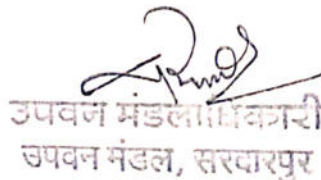 उपवन मंडलाधिकारी
उपवन मंडल, सरदारपुर